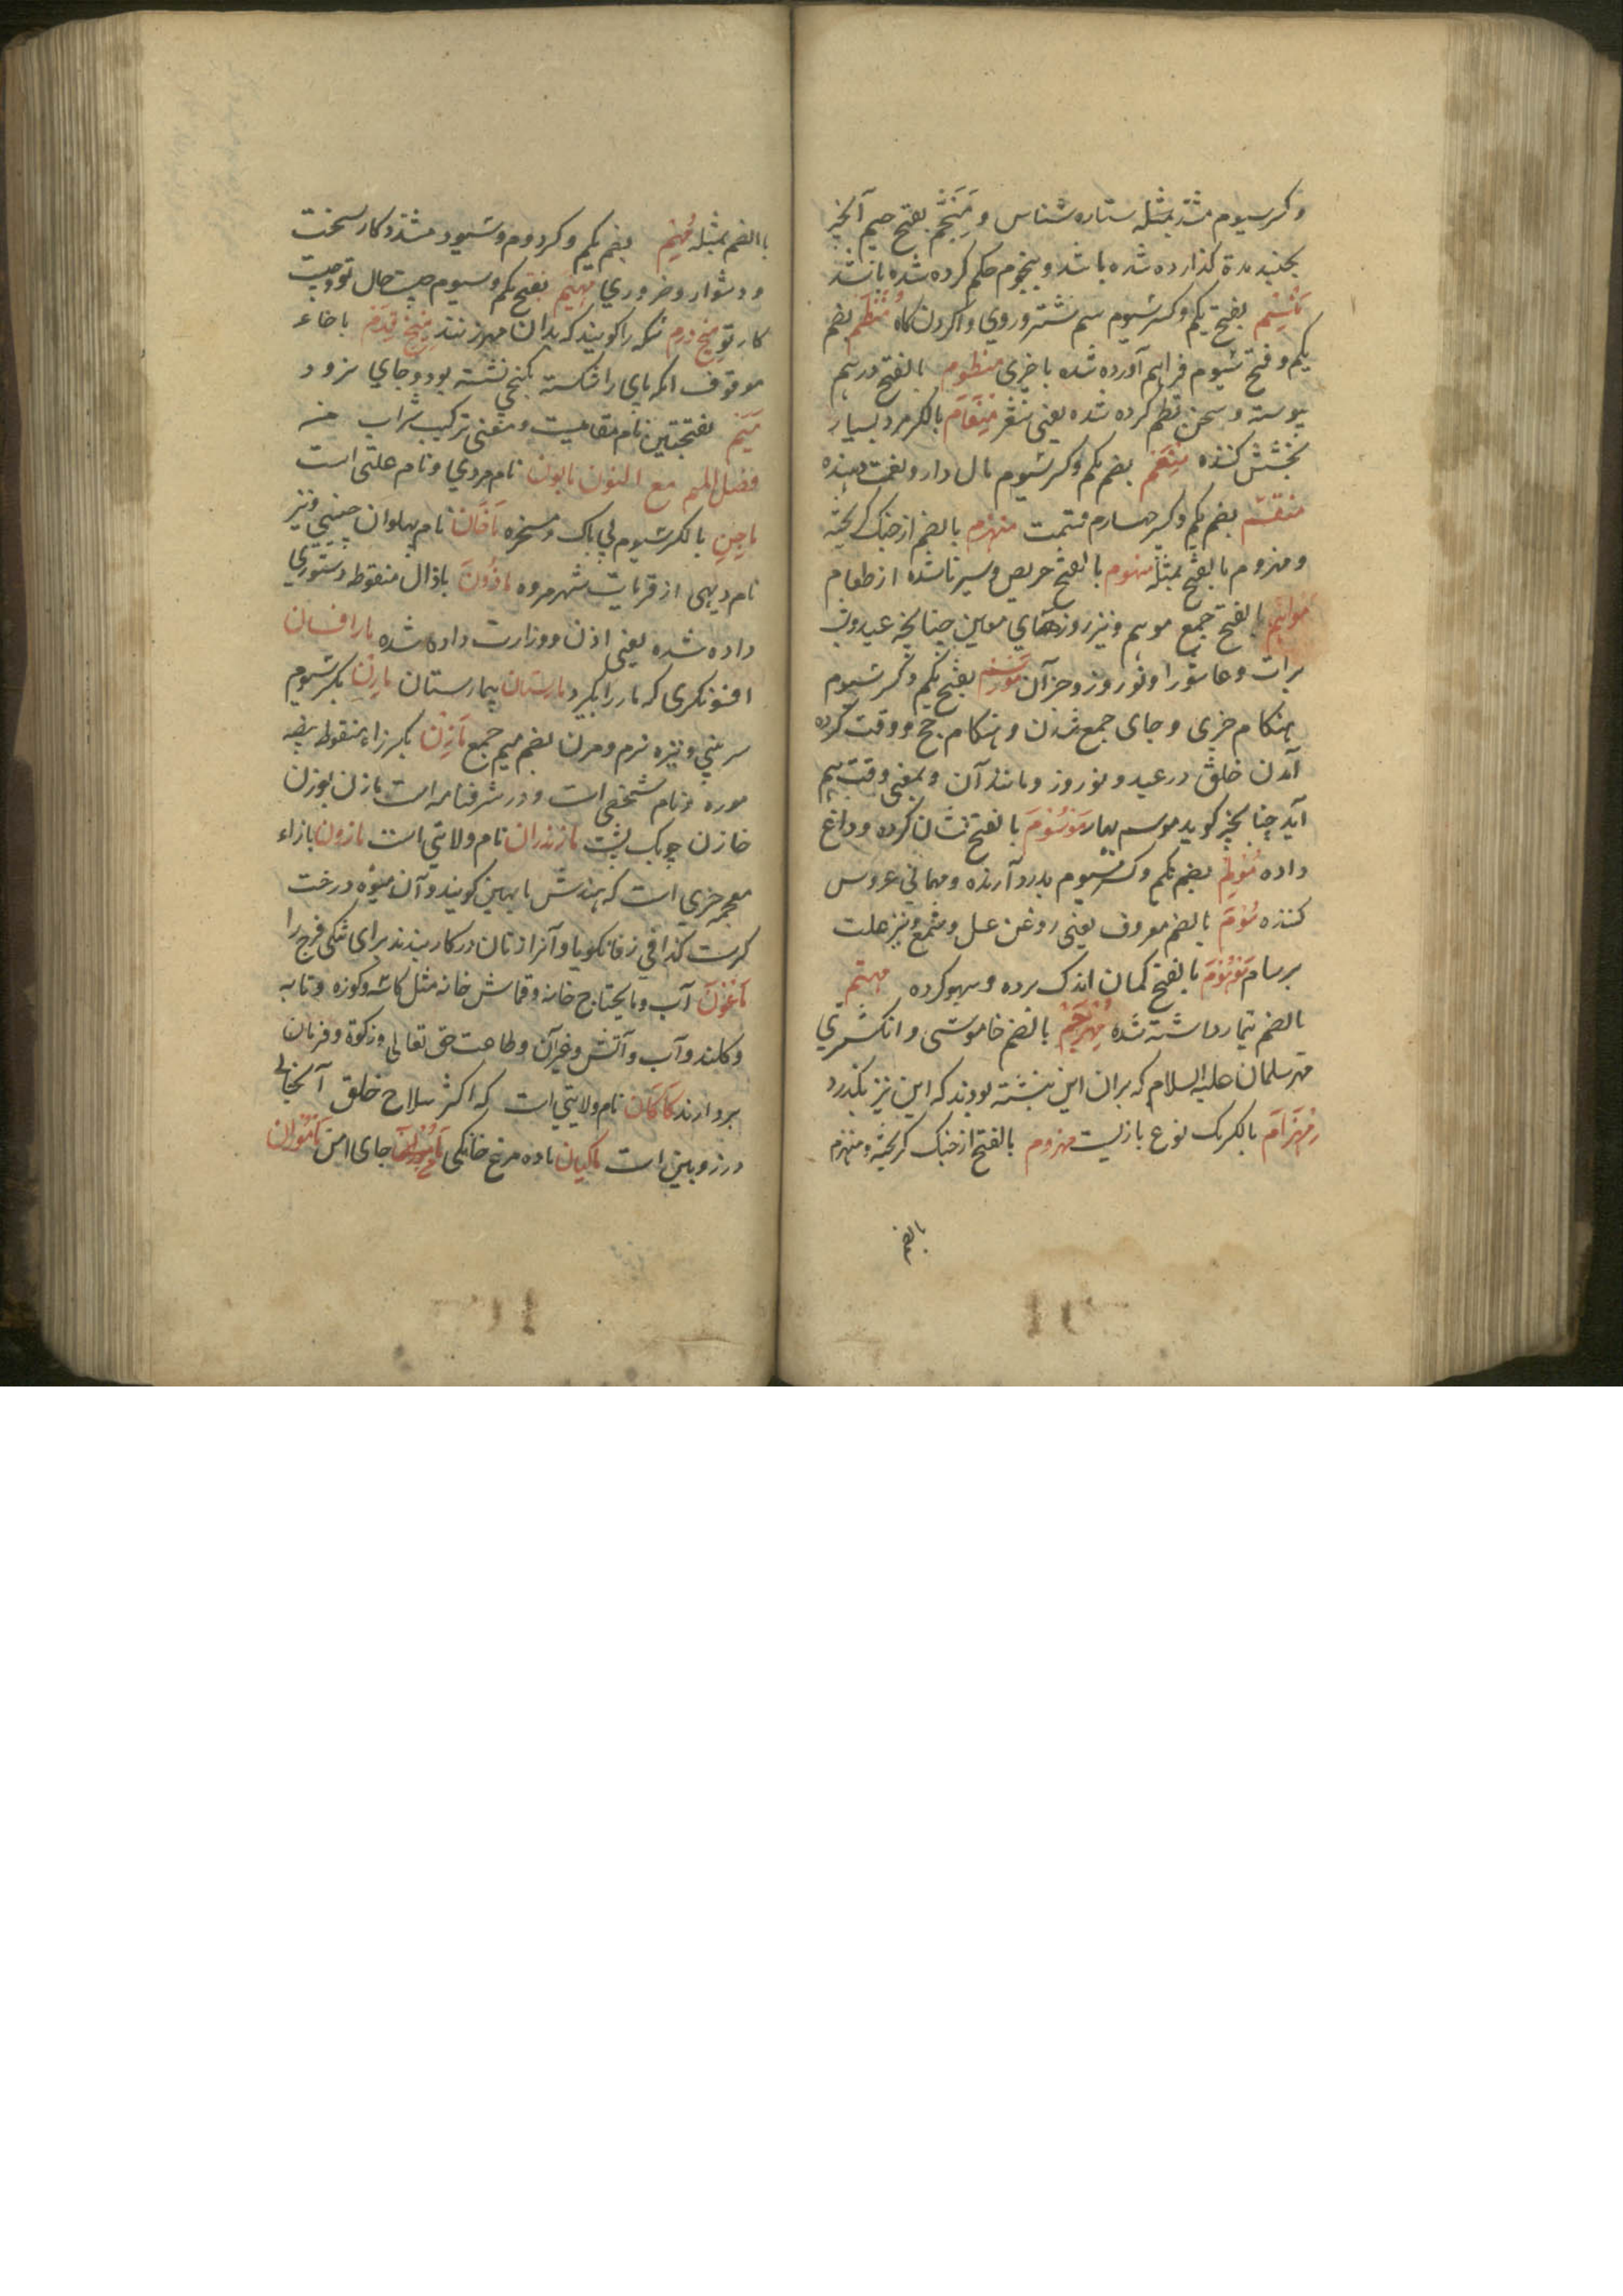 وکسر سیوم مشدد بمثله ستاره شناس و مُنَجَّم بفتح جیم آنچیز
بچند مدة گذارده شده باشد و بنجوم حکم کرده شده باشد
مَنْسِم بفتح یکم وکسر سیوم سم شتر و روی واکردن گاه مُنْتَظَم بضم
یکم و فتح سیوم فراهم آورده شده با چیزی منظوم بالفتح درهم
پیوسته و سخن نظم کرده شده یعنی شعر مِنْعَام بالکسر مرد بسیار
بخشش کننده مُنْعِم بضم یکم وکسر سیوم مال دار و نعمت دهنده
منقسم بضم یکم وکسر چهارم قسمت منهزم بالضم از جنک گریخته
ومهزوم بالفتح بمثله منهوم بالفتح حریص و سیر ناشده از طعام
مواسم بالفتح جمع موسم و نیز روزهای معین چنانچه عید و شب
برات و عاشورا و نوروز و جز آن موسم بفتح یکم وکسر سیوم
هنکام چیزی و جای جمع شدن و هنکام حج و وقت کرده
آمدن خلق در عید و نوروز و مانند آن و بمعنی وقت هم
آید چنانچه کوید موسم بهار مَوْسُوْم بالفتح نشان کرده و داغ
داده مُوْلِم بضم یکم وکسر سیوم بدرد آرنده و مهمانی عروس
کننده مُوْم بالضم معروف یعنی روغن عسل و شمع و نیز علت
برسام مَوْهُوْم بالفتح کمان اندک برده و سهو کرده مهتم
بالضم تیمار داشته شده مُهْرجَم بالضم خاموشی و انکشتری
مهتر سلمان علیه السلام که بران این نبشته بودند که این نیز بکذرد
مِهْرَام بالکسر یک نوع بازیست مهزوم بالفتح از جنک کریخته و منهزم
بالضم
باالضم بمثله مُهِمّ بضم یکم وکسر دوم و سیوم مشدد کار سخت
و دشوار و ضروری مهیم بفتح یکم و سیوم چیست حال تو و چیست
کار تو میخ درم سکه را کویند که بدان مهر زنند میخ قدم با خاء
موقوف آنکه پای را شکسته بکنجی نشسته بود و جای نرود
مَیَم بفتحتین نام مقامیست و معنی ترکیب شراب من
فصل المیم مع النون مابون نام مردی و نام علتی است
ماجِن بالکسر سیوم بی باک و مسخره مَاخَان نام پهلوان چینی و نیز
نام دیهی از قریات شهر مروه ماذُون باذال منقوطه دستوری
داده شده یعنی اذن و وزارت داده شده مارافسان
افسونکری که مار را بکیرد مارستان بیمارستان مارِن بکسر سیوم
سر بینی و نیزه نرم و مرن بضم میم جمع مَازِن بکسر زاء منقوطه بیضه
موره و نام شخصی است و در شرفنامه است مازن بوزن
خازن چوبک پشت مازندران نام ولایتی است مازون بازاء
معجمه چیزی است که هندش مایهین کویند و آن میوه درخت
کرست کذا فی زفانکویا و آنرا زنان در کار بندند برای تنکی فرج را
مَاعُون آب و مایحتاج خانه و قماش خانه مثل کاسه و کوزه و تابه
و کلند و آب و آتش و غیر آن و طاعت حق تعالی و زکوة و فرمان
بردارند مَاکَان نام ولایتی است که اکثر سلاح خلق آنجائی
درزوبین است ماکیان ماده مرغ خانکی مَامُون جای امن مَامُوَان